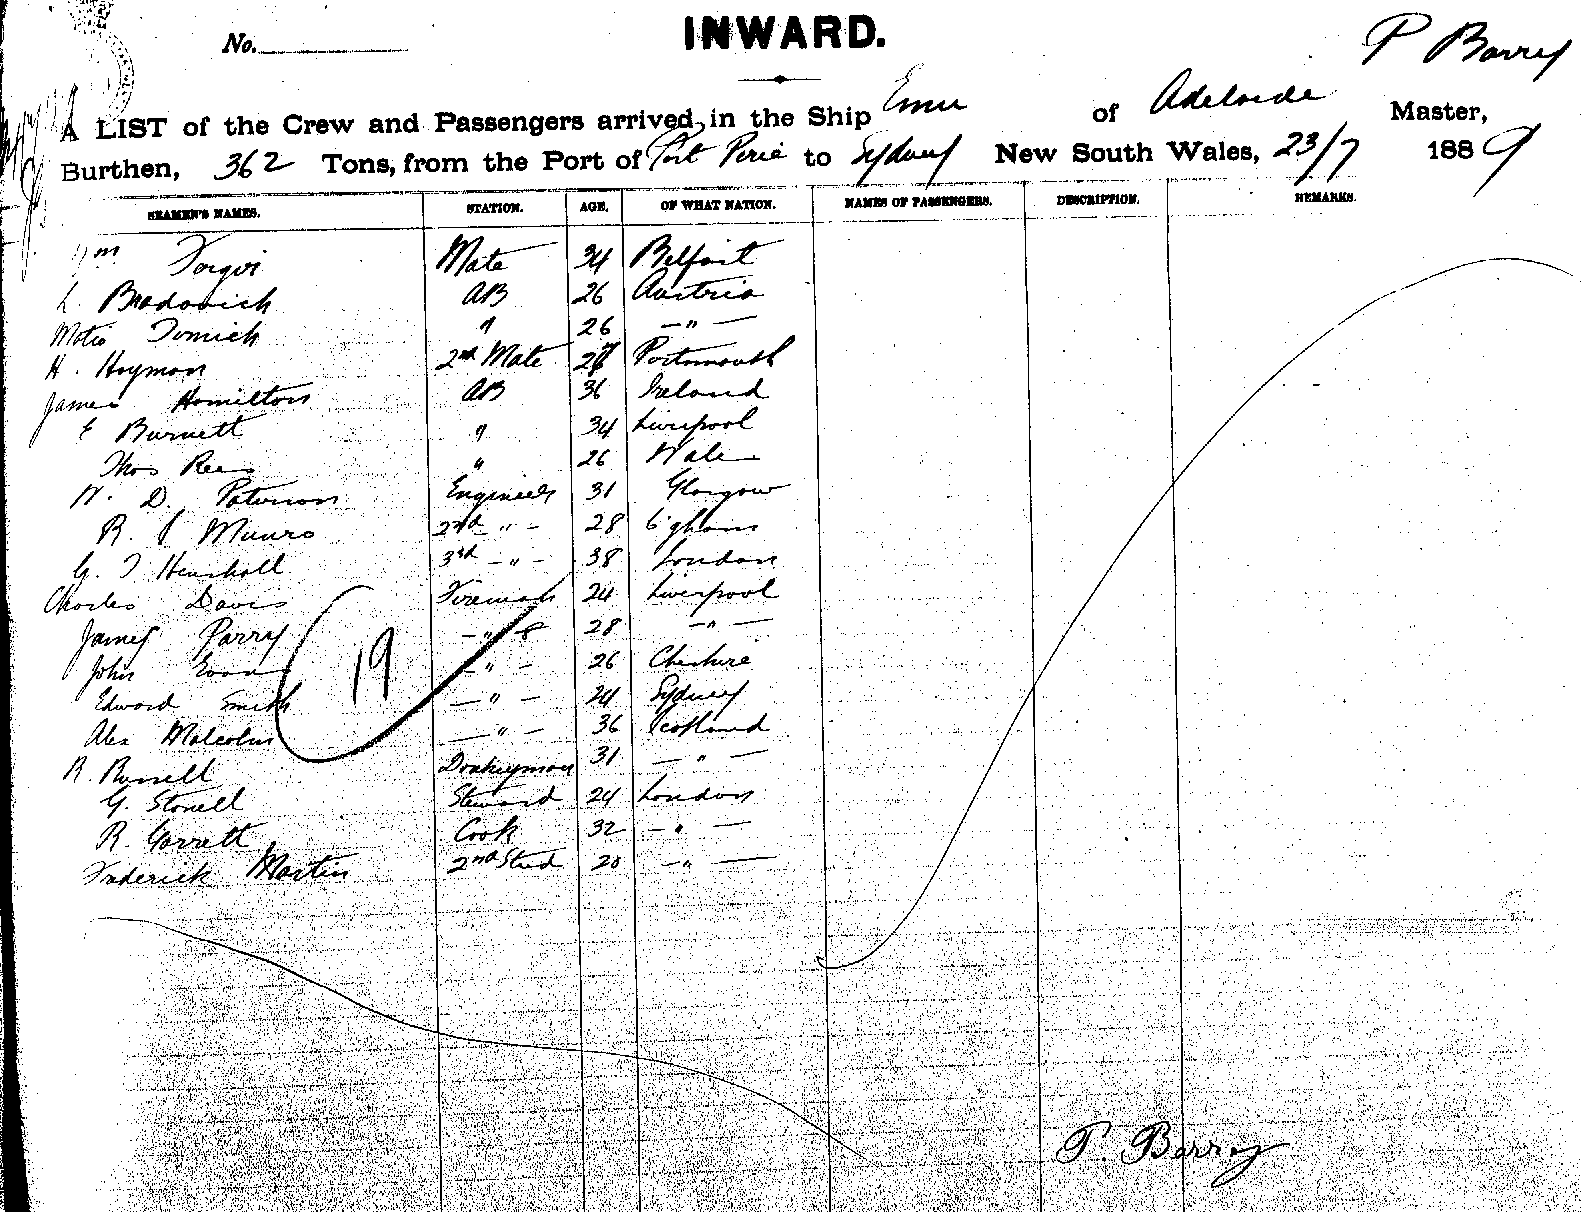 No.
INWARD.
P Barry
A LIST of the Crew and Passengers arrived in the Ship Emu of Adelaide Master,
Burthen, 362 Tons, from the Port of Port Pirie to Sydney New South Wales, 23/7 1889
SEAMEN'S NAMES. STATION. AGE. OF WHAT NATION. NAMES OF PASSENGERS. DESCRIPTION. REMARKS.
Wm Mate 34 Belfast
L. Bradovich AB 26 Austria
Tomich " 26 — " —
H. Hayman 2nd Mate 27 Portsmouth
James Hamilton AB 36 Ireland
E Burnett " 34 Liverpool
Thos Rees " 26 Wales
W. D. Paterson Engineer 31 Glasgow
R. Munro 2nd " - 28
G. T Henshall 3rd - " - 38 London
Charles Davis Fireman 24 Liverpool
James Parry — " 28 — " —
John Evans — " - 26 Cheshire
Edward Smith — " — 24 Sydney
Alex Malcolm — " — 36 Scotland
R. Russell Donkeyman 31 — " —
G. Stonell Steward 24 London
R. Garrett Cook 32 — " —
Frederick Martin 2nd Stwd 20 — " —
19
P. Barry